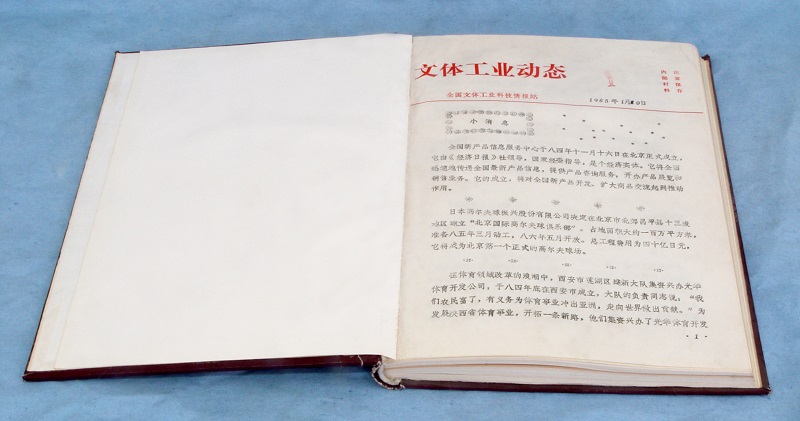 文体工业动态
内部材料
注意保存
全国文体工业科技情报站
1985年1月10日
小消息
全国新产品信息服务中心于八四年十一月十六日在北京正式成立，
它由《经济日报》社领导，国家经委指导，是个经济实体。它将全面
迅速地传递全国最新产品信息，提供产品咨询服务，开办产品展览和
销售业务。它的成立，将对全国新产品开发、扩大商品交流起到推动
作用。
日本高尔夫球振兴股份有限公司决定在北京市北部昌平县十三陵
地区建立“北京国际高尔夫球俱乐部”。占地面积大约一百万平方米，
准备八五年三月动工，八六年五月开放。总工程费用为四十亿日元，
它将成为北京第一个正式的高尔夫球场。
在体育领域改革的浪潮中，西安市莲湖区建新大队集资兴办光华
体育开发公司，于八四年底在西安市成立，大队的负责同志说：“我
们农民富了，有义务为体育事业冲出亚洲，走向世界做出贡献。”为
发展陕西省体育事业，开拓一条新路，他们集资兴办了光华体育开发
·1·